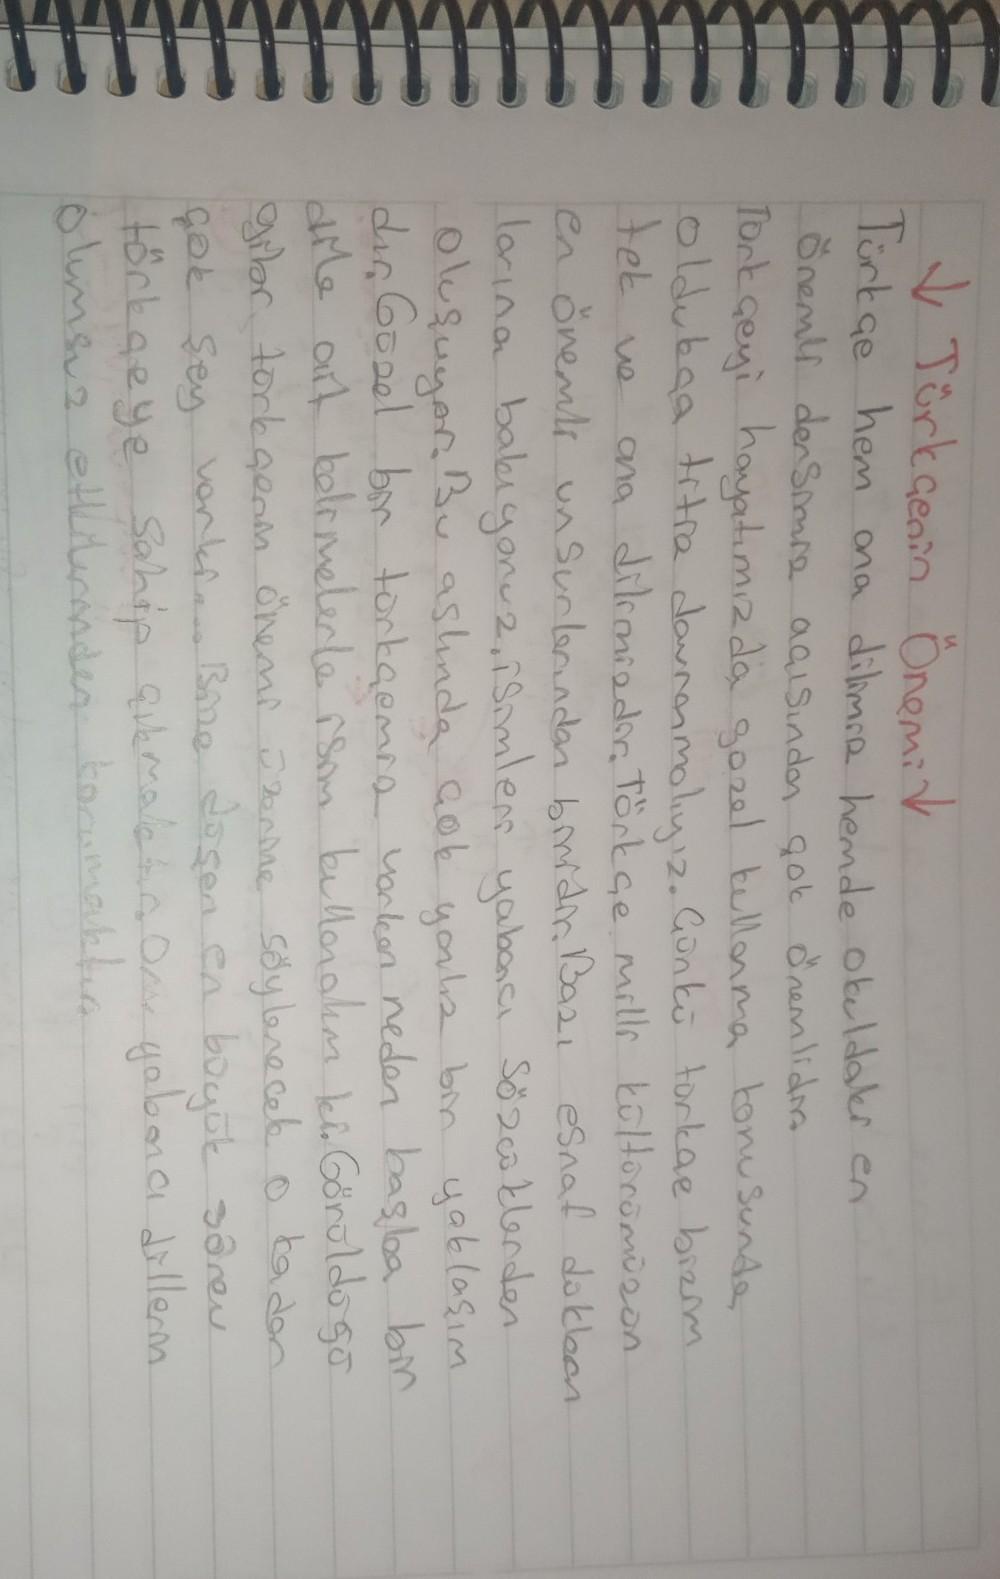 ↓ Türkçenin Önemi ↓
Türkçe hem ana dilimiz hemde okuldaki en
önemli dersimiz açısından çok önemlidir.
Türkçeyi hayatımızda güzel kullanma konusunda
oldukça titiz davranmalıyız. Çünkü türkçe bizim
tek ve ana dilimizdir. Türkçe milli kültürümüzün
en önemli unsurlarından biridir. Bazı esnaf dükkan
larına bakıyoruz, isimleri yabancı sözcüklerden
oluşuyor. Bu aslında çok yanlış bir yaklaşım
dır. Güzel bir türkçemiz varken neden başka bir
dile ait kelimelerle isim kullanalım ki. Görüldüğü
gibi, türkçenin önemi üzerine söylenecek o kadar
çok şey varki... Bize düşen en büyük görev
türkçeye sahip çıkmaktır. Onu yabancı dillerin
olumsuz etkilerinden korumaktır.